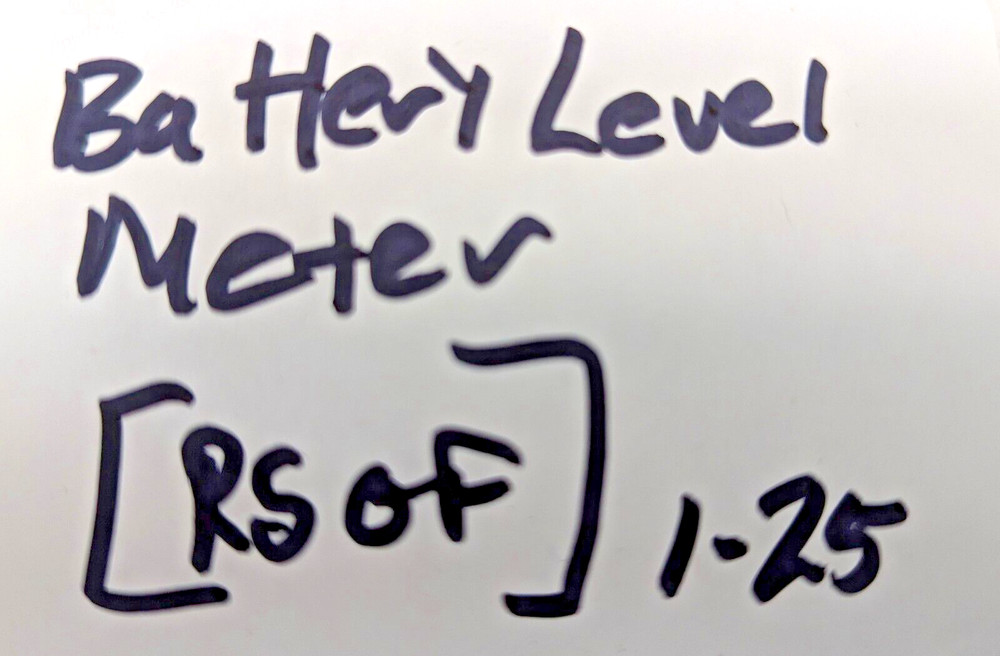 Battery Level
Meter
[RS OF] 1-25